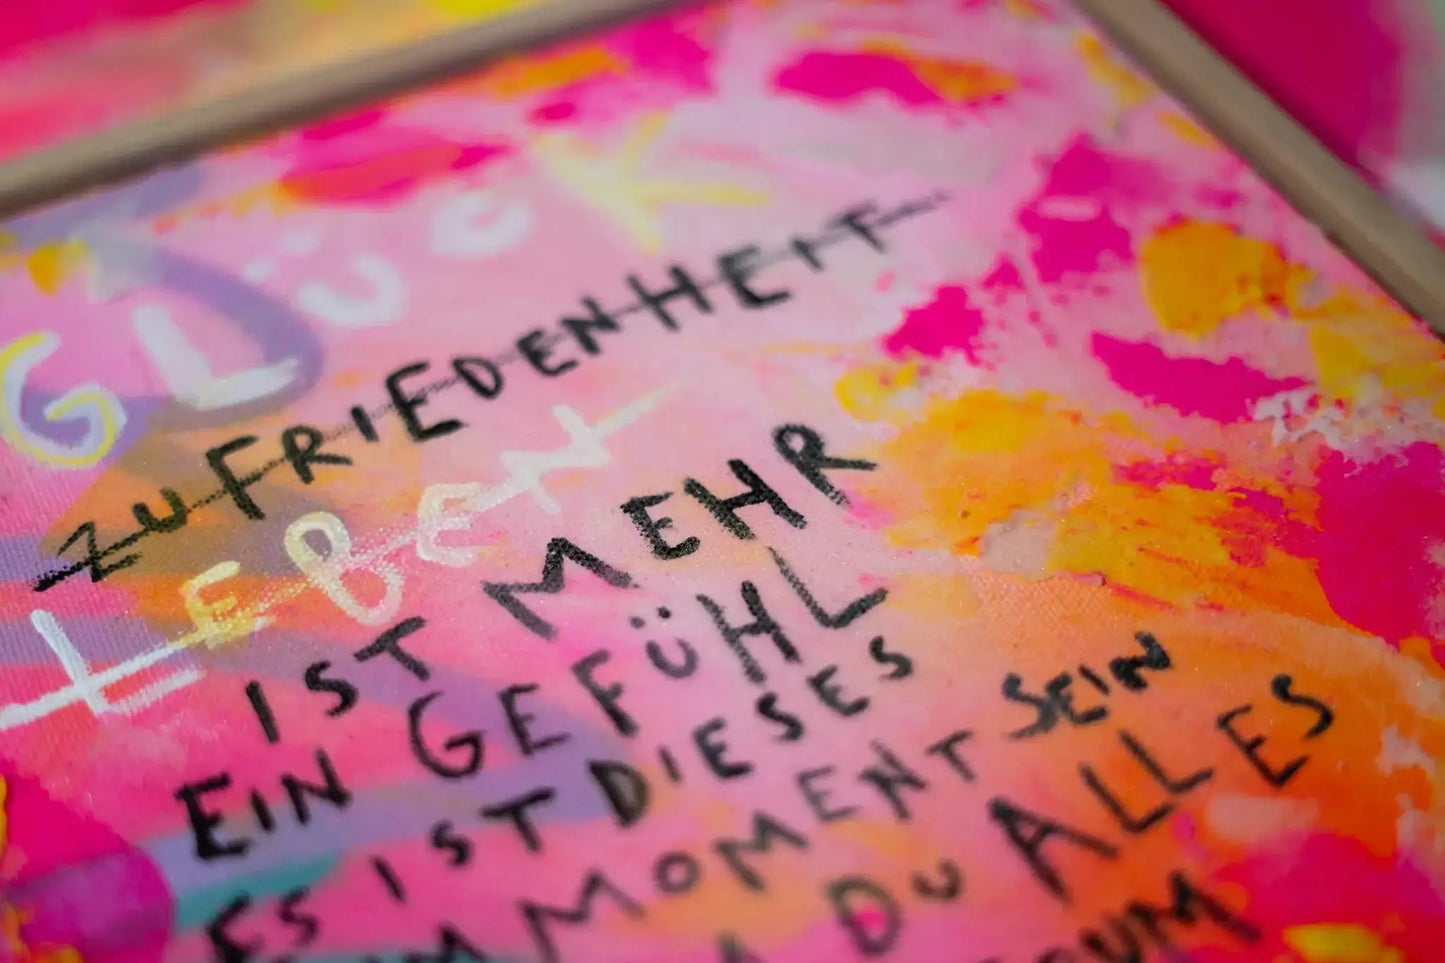 GLÜCK
ZUFRIEDENHEIT
LEBEN
IST MEHR
EIN GEFÜHL
ES IST DIESES
IM MOMENT SEIN
DU ALLES